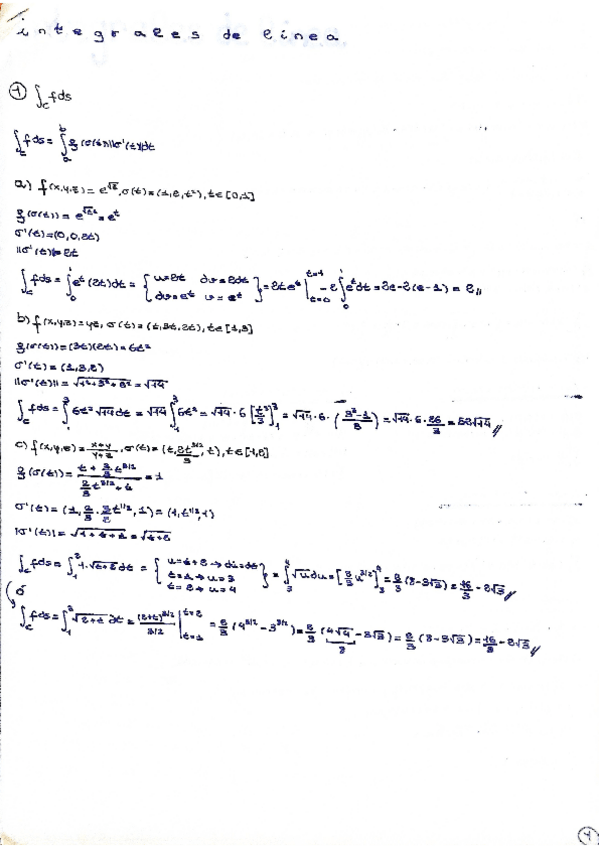 integrales de linea
① ∫_C f ds
∫_C f ds = ∫_a^b f(σ(t)) ||σ'(t)|| dt
a) f(x,y,z) = e^√z, σ(t) = (1,2,t²), t ∈ [0,1]
f(σ(t)) = e^√t² = e^t
σ'(t) = (0,0,2t)
||σ'(t)|| = 2t
∫_C f ds = ∫_0^1 e^t (2t) dt = { u=2t du=2dt dv=e^t v=e^t } = 2te^t |_{t=0}^{t=1} - 2 ∫_0^1 e^t dt = 2e - 2(e-1) = 2 //
b) f(x,y,z) = yz, σ(t) = (t,3t,2t), t ∈ [1,3]
f(σ(t)) = (3t)(2t) = 6t²
σ'(t) = (1,3,2)
||σ'(t)|| = √(1²+3²+2²) = √14
∫_C f ds = ∫_1^3 6t² √14 dt = √14 ∫_1^3 6t² = √14 · 6 [t³/3]_1^3 = √14 · 6 · (3³-1/3) = √14 · 6 · 26/3 = 52√14 //
c) f(x,y,z) = x+y/y+z, σ(t) = (t, 2/3 t^3/2, t), t ∈ [1,2]
f(σ(t)) = t + 2/3 t^3/2 / 2/3 t^3/2 + t = 1
σ'(t) = (1, 2/3 · 3/2 t^1/2, 1) = (1, t^1/2, 1)
||σ'(t)|| = √(1+t+1) = √(t+2)
∫_C f ds = ∫_1^2 1·√(t+2) dt = { u=t+2 → du=dt t=1 → u=3 t=2 → u=4 } = ∫_3^4 √u du = [2/3 u^3/2]_3^4 = 2/3 (8-3√3) = 16/3 - 2√3 //
ó
∫_C f ds = ∫_1^2 √(2+t) dt = (2+t)^3/2 / 3/2 |_{t=1}^{t=2} = 2/3 (4^3/2 - 3^3/2) = 2/3 (4√4 - 3√3) = 2/3 (8-3√3) = 16/3 - 2√3 //
8
①